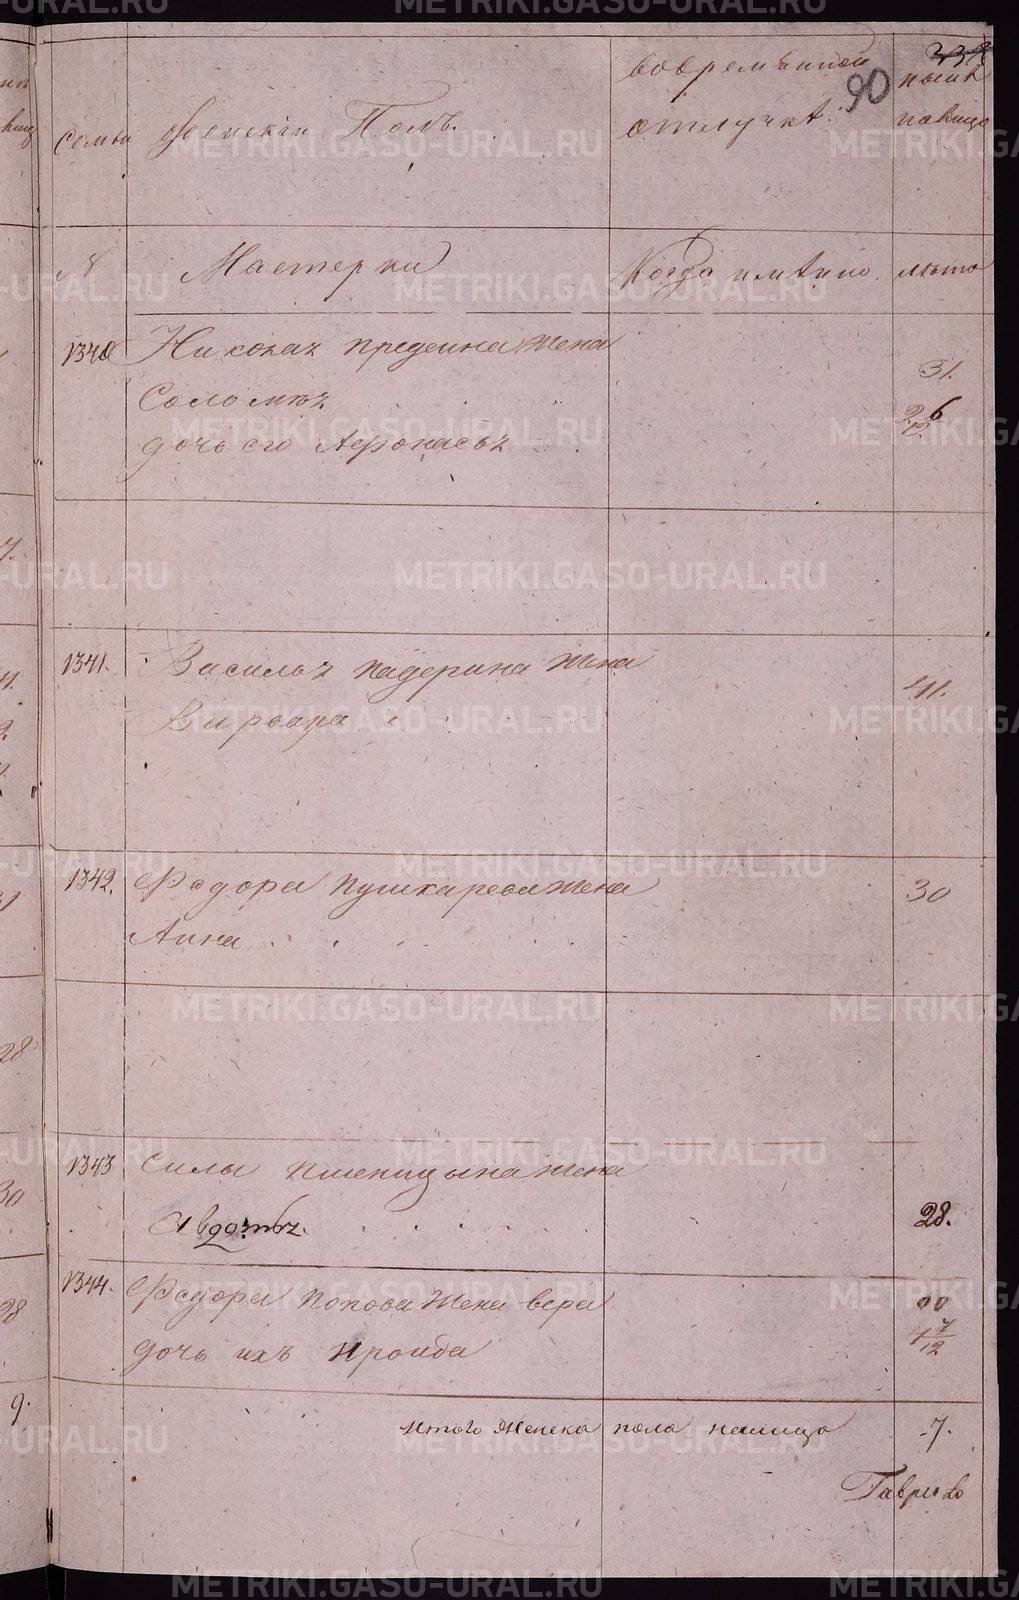 вовремѣнной
90
ныне
семьи женскiй Полъ.
отлучкѣ.
налицо
№ Мастерки Когда имянно лѣта
1340 Николая предеина жена
Соломея 31.
дочь его Афонасья
1341. Василья падерина жена
Варвара 41.
1342. Федора пушкарева жена 30
Анна
1343 Силы пшеницына жена
Авдотья. 28.
1344. Федора попова жена вера
дочь ихъ Ираида 1 7/12
итого женска пола налицо 7.
METRIKI.GASO-URAL.RU